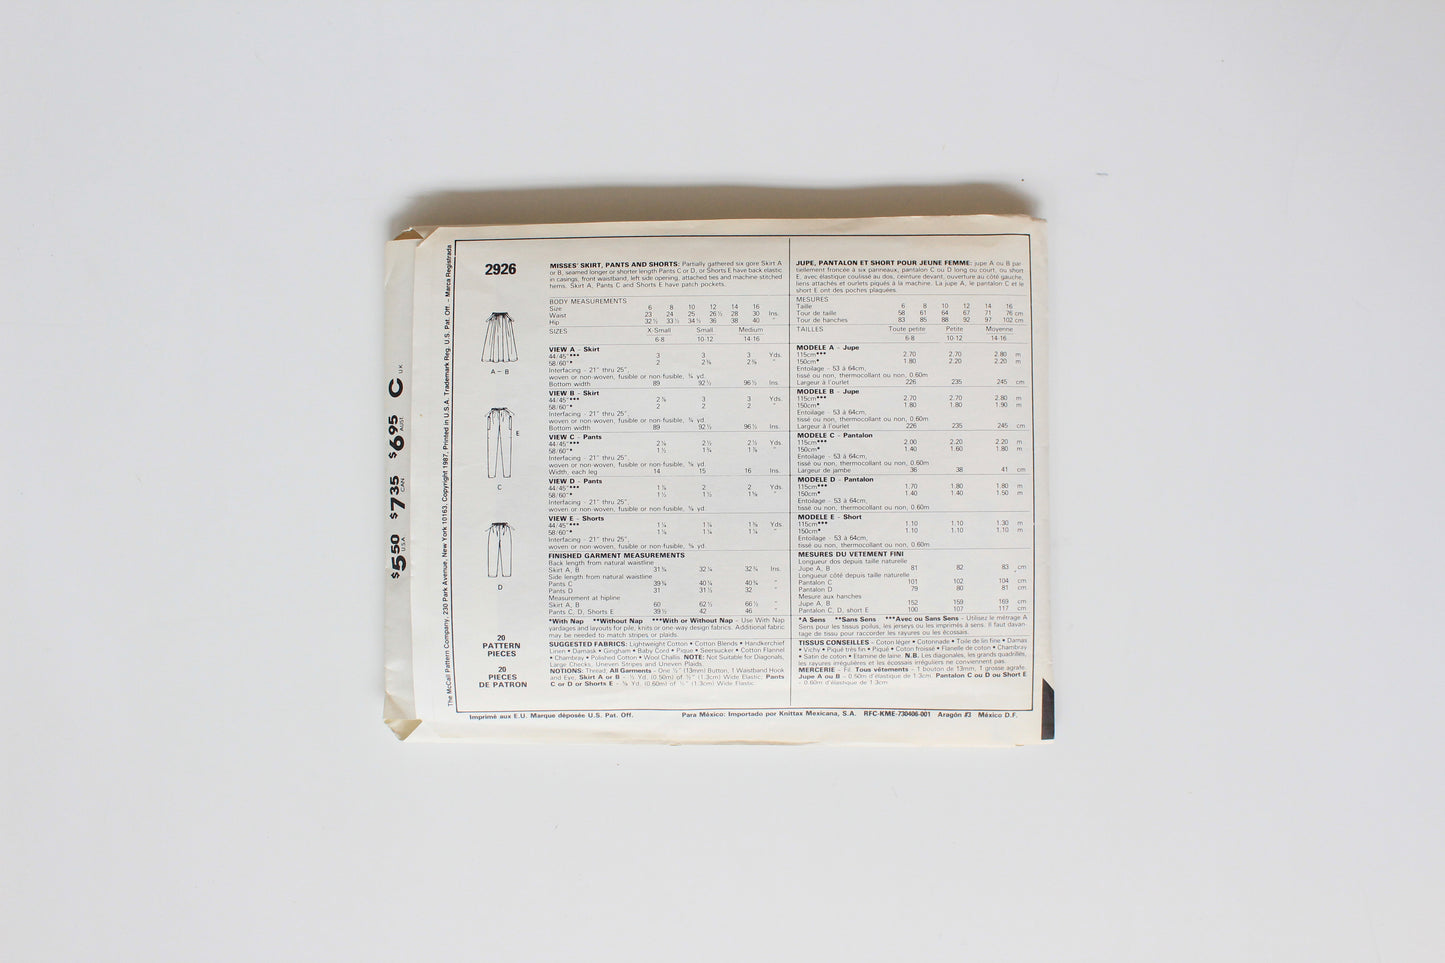 2926
MISSES' SKIRT, PANTS AND SHORTS: Partially gathered six gore Skirt A
or B, seamed longer or shorter length Pants C or D, or Shorts E have back elastic
in casings, front waistband, left side opening, attached ties and machine stitched
hems. Skirt A, Pants C and Shorts E have patch pockets.
BODY MEASUREMENTS
Size 6 8 10 12 14 16
Waist 23 24 25 26½ 28 30 Ins.
Hip 32½ 33½ 34½ 36 38 40 "
SIZES X-Small Small Medium
6-8 10-12 14-16
VIEW A - Skirt
44/45"*** 3 3 3 Yds.
58/60"* 2
Interfacing - 21" thru 25",
woven or non-woven, fusible or non-fusible, yd.
Bottom width 89 92½ 96½ Ins.
VIEW B - Skirt
44/45"*** 3 3 Yds.
58/60"* 2 2 2 "
Interfacing - 21" thru 25",
woven or non-woven, fusible or non-fusible, yd.
Bottom width 89 92½ 96½ Ins.
VIEW C - Pants
44/45"*** Yds.
58/60"*
Interfacing - 21" thru 25",
woven or non-woven, fusible or non-fusible, yd.
Width, each leg 14 15 16 Ins.
VIEW D - Pants
44/45"*** 2 2 Yds.
58/60"*
Interfacing - 21" thru 25",
woven or non-woven, fusible or non-fusible, yd.
VIEW E - Shorts
44/45"*** Yds.
58/60"*
Interfacing - 21" thru 25",
woven or non-woven, fusible or non-fusible, yd.
FINISHED GARMENT MEASUREMENTS
Back length from natural waistline
Skirt A, B Ins.
Side length from natural waistline
Pants C
Pants D 31 31½ 32 "
Measurement at hipline
Skirt A, B 60 62½ 66½ "
Pants C, D, Shorts E 39½ 42 46 "
*With Nap **Without Nap ***With or Without Nap - Use With Nap
yardages and layouts for pile, knits or one-way design fabrics. Additional fabric
may be needed to match stripes or plaids.
SUGGESTED FABRICS: Lightweight Cotton • Cotton Blends • Handkerchief
Linen • Damask • Gingham • Baby Cord • Pique • Seersucker • Cotton Flannel
• Chambray • Polished Cotton • Wool Challis. NOTE: Not Suitable for Diagonals,
Large Checks, Uneven Stripes and Uneven Plaids.
NOTIONS: Thread; All Garments - One ½" (13mm) Button, 1 Waistband Hook
and Eye, Skirt A or B - ½ Yd. (0.50m) of ½" (1.3cm) Wide Elastic, Pants
C or D or Shorts E - Yd. (0.60m) of ½" (1.3cm) Wide Elastic.
JUPE, PANTALON ET SHORT POUR JEUNE FEMME: jupe A ou B par
tiellement froncée à six panneaux, pantalon C ou D long ou court, ou short
E, avec élastique coulissé au dos, ceinture devant, ouverture au côté gauche,
liens attachés et ourlets piqués à la machine. La jupe A, le pantalon C et le
short E ont des poches plaquées.
MESURES
Taille 6 8 10 12 14 16
Tour de taille 58 61 64 67 71 76 cm
Tour de hanches 83 85 88 92 97 102 cm
TAILLES Toute petite Petite Moyenne
6-8 10-12 14-16
MODELE A - Jupe
115cm*** 2.70 2.70 2.80 m
150cm* 1.80 2.20 2.20 m
Entoilage - 53 à 64cm,
tissé ou non, thermocollant ou non, 0.60m
Largeur à l'ourlet 226 235 245 cm
MODELE B - Jupe
115cm*** 2.70 2.70 2.80 m
150cm* 1.80 1.80 1.90 m
Entoilage - 53 à 64cm,
tissé ou non, thermocollant ou non, 0.60m
Largeur à l'ourlet 226 235 245 cm
MODELE C - Pantalon
115cm*** 2.00 2.20 2.20 m
150cm* 1.40 1.60 1.80 m
Entoilage - 53 à 64cm,
tissé ou non, thermocollant ou non, 0.60m
Largeur de jambe 36 38 41 cm
MODELE D - Pantalon
115cm*** 1.70 1.80 1.80 m
150cm* 1.40 1.40 1.50 m
Entoilage - 53 à 64cm,
tissé ou non, thermocollant ou non, 0.60m
MODELE E - Short
115cm*** 1.10 1.10 1.30 m
150cm* 1.10 1.10 1.10 m
Entoilage - 53 à 64cm,
tissé ou non, thermocollant ou non, 0.60m
MESURES DU VETEMENT FINI
Longueur dos depuis taille naturelle
Jupe A, B 81 82 83 cm
Longueur côté depuis taille naturelle
Pantalon C 101 102 104 cm
Pantalon D 79 80 81 cm
Mesure aux hanches
Jupe A, B 152 159 169 cm
Pantalon C, D, short E 100 107 117 cm
*A Sens **Sans Sens ***Avec ou Sans Sens - Utilisez le métrage A
Sens pour les tissus poilus, les jerseys ou les imprimés à sens. Il faut davan-
tage de tissu pour raccorder les rayures ou les écossais.
TISSUS CONSEILLES - Coton léger • Cotonnade • Toile de lin fine • Damas
• Vichy • Piqué très fin • Piqué • Coton froissé • Flanelle de coton • Chambray
• Satin de coton • Etamine de laine. N.B. Les diagonales, les grands quadrillés,
les rayures irrégulières et les écossais irréguliers ne conviennent pas.
MERCERIE - Fil. Tous vêtements - 1 bouton de 13mm, 1 grosse agrafe.
Jupe A ou B - 0.50m d'élastique de 1.3cm. Pantalon C ou D ou Short E
- 0.60m d'élastique de 1.3cm
A - B
E
C
D
20
PATTERN
PIECES
20
PIECES
DE PATRON
Imprimé aux E.U. Marque déposée U.S. Pat. Off.
Para México: Importado por Knittax Mexicana, S.A. RFC-KME-730406-001 Aragón #3 México D.F.
The McCall Pattern Company, 230 Park Avenue, New York 10163, Copyright 1987, Printed in U.S.A. Trademark Reg. U.S. Pat. Off. - Marca Registrada
$5.50 USA $7.35 CAN $6.95 AUST C UK